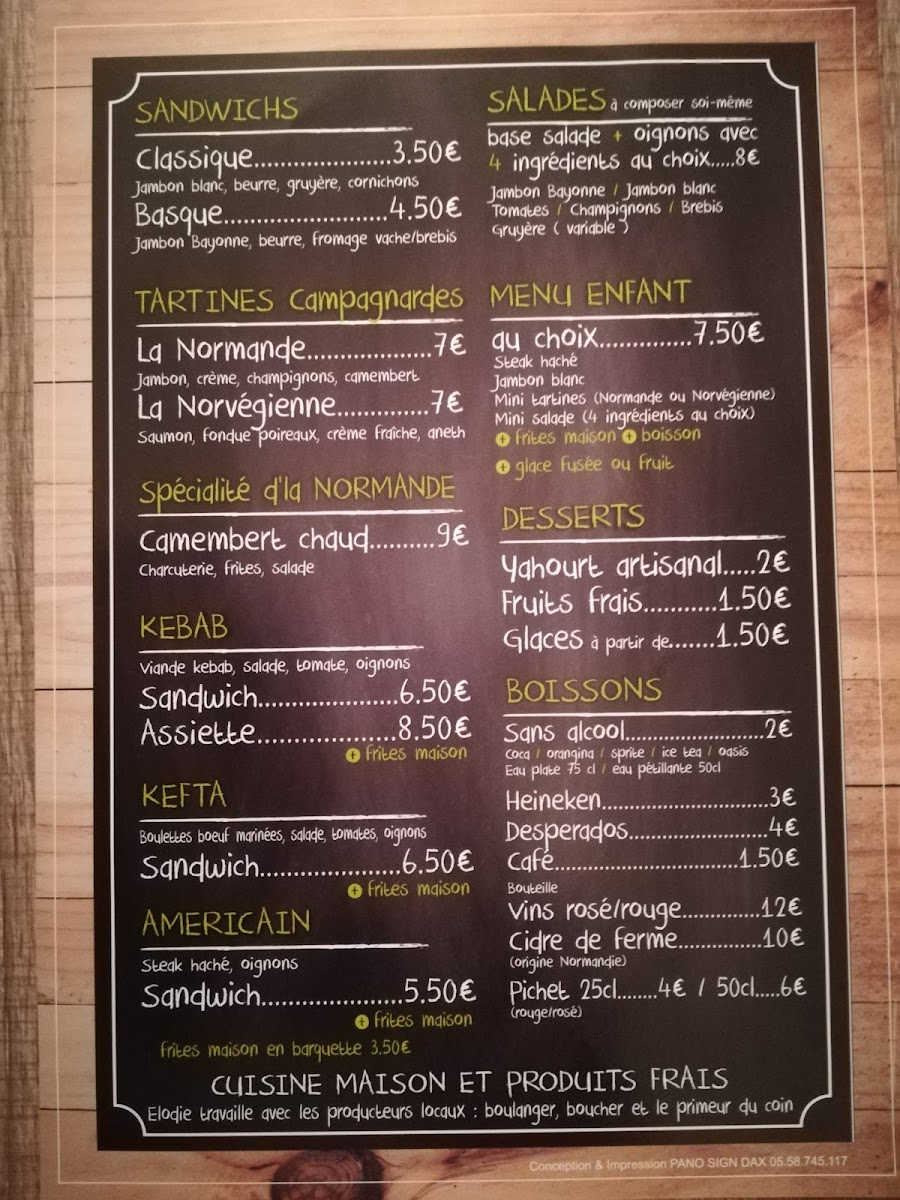 SANDWICHS
Classique.....................3.50€
Jambon blanc, beurre, gruyère, cornichons
Basque.........................4.50€
Jambon Bayonne, beurre, fromage vache/brebis
TARTINES Campagnardes
La Normande...................7€
Jambon, crème, champignons, camembert
La Norvégienne..............7€
Saumon, fondue poireaux, crème fraîche, aneth
Spécialité d'la NORMANDE
Camembert chaud..........9€
Charcuterie, frites, salade
KEBAB
Viande kebab, salade, tomate, oignons
Sandwich.....................6.50€
Assiette.....................8.50€
+ frites maison
KEFTA
Boulettes boeuf marinées, salade, tomates, oignons
Sandwich.....................6.50€
+ frites maison
AMERICAIN
Steak haché, oignons
Sandwich.....................5.50€
+ frites maison
frites maison en barquette 3.50€
SALADES à composer soi-même
base salade + oignons avec
4 ingrédients au choix.....8€
Jambon Bayonne / Jambon blanc
Tomates / Champignons / Brebis
Gruyère ( variable )
MENU ENFANT
au choix..............7.50€
Steak haché
Jambon blanc
Mini tartines (Normande ou Norvégienne)
Mini salade (4 ingrédients au choix)
+ frites maison + boisson
+ glace fusée ou fruit
DESSERTS
Yahourt artisanal.....2€
Fruits frais...........1.50€
Glaces à partir de.......1.50€
BOISSONS
Sans alcool.....................2€
Coca / orangina / sprite / ice tea / oasis
Eau plate 75 cl / eau pétillante 50cl
Heineken.........................3€
Desperados.....................4€
Café...........................1.50€
Bouteille
Vins rosé/rouge.............12€
Cidre de ferme..............10€
(origine Normandie)
Pichet 25cl.......4€ / 50cl.....6€
(rouge/rosé)
CUISINE MAISON ET PRODUITS FRAIS
Elodie travaille avec les producteurs locaux : boulanger, boucher et le primeur du coin
Conception & Impression PANO SIGN DAX 05.58.745.117